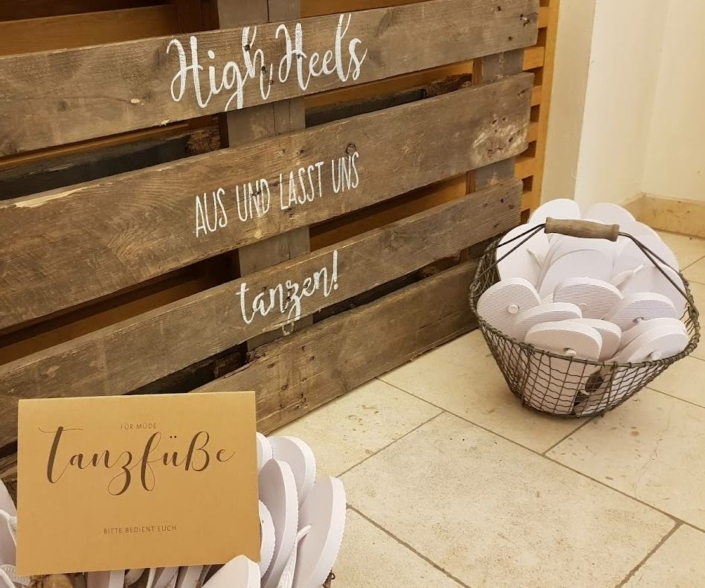 High Heels
AUS UND LASST UNS
tanzen!
FÜR MÜDE
tanzfüße
BITTE BEDIENT EUCH